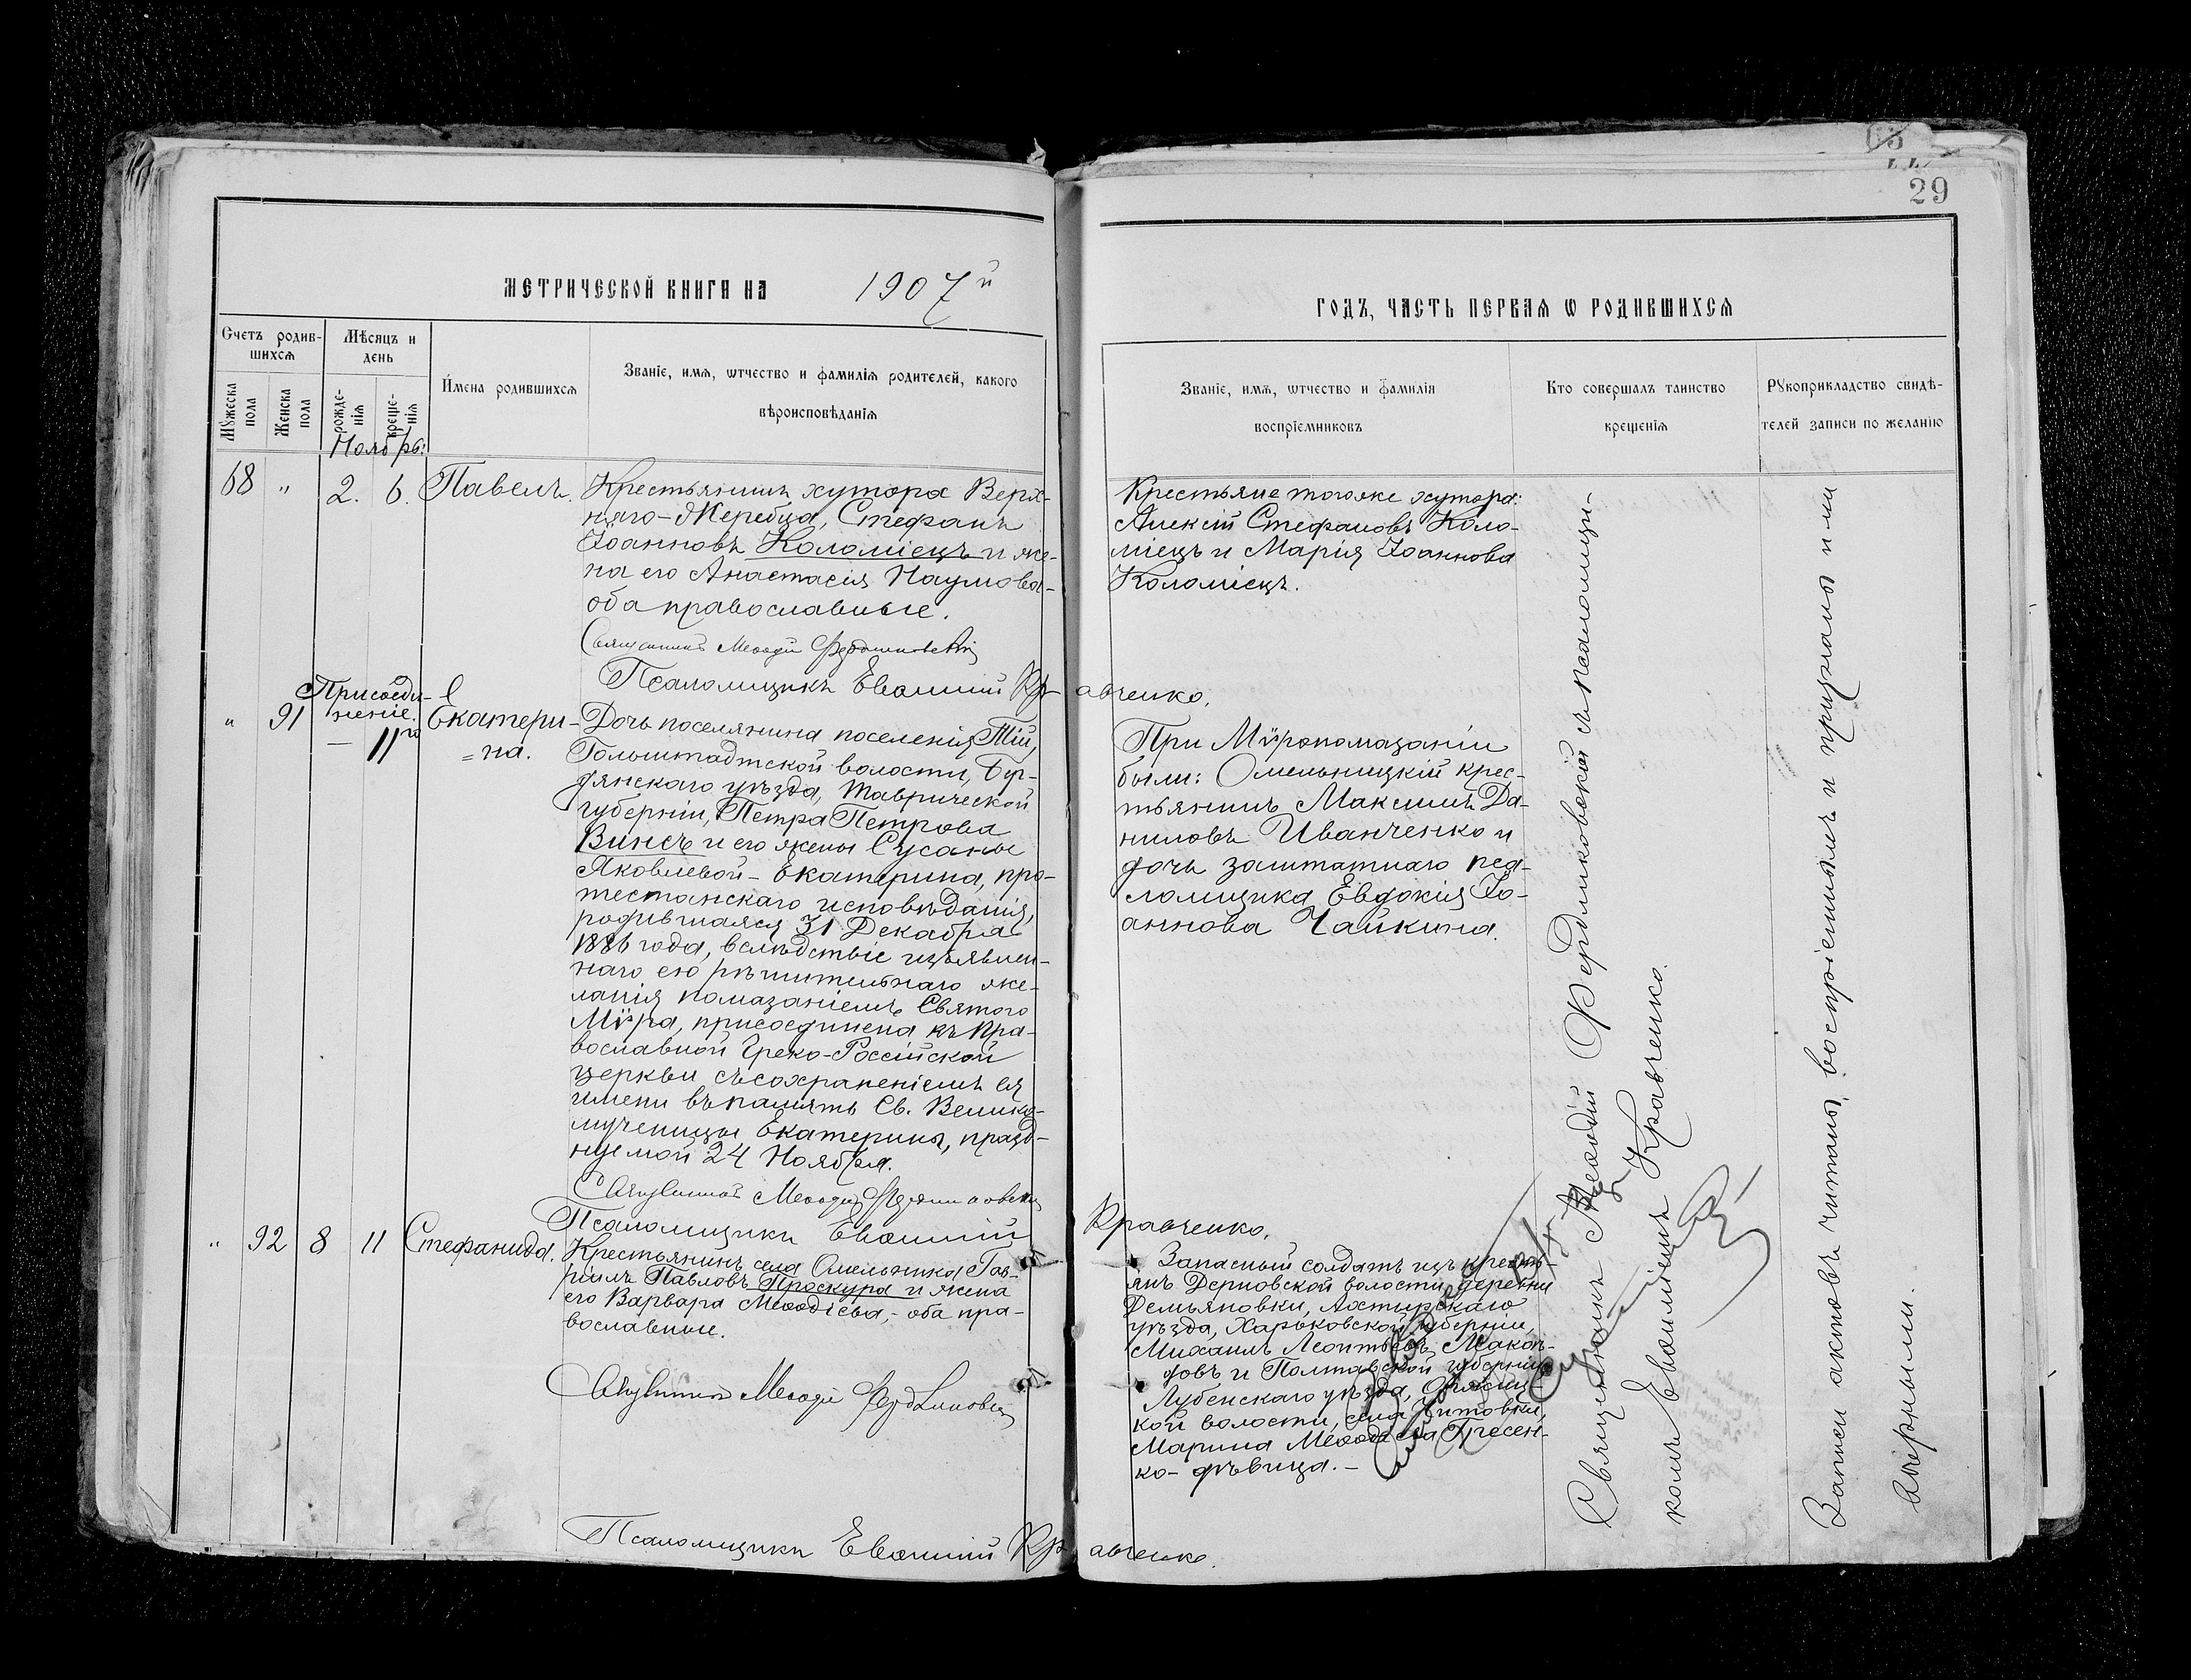 29
МЕТРИЧЕСКОЙ КНИГИ НА 1907й
ГОДЪ, ЧАСТЬ ПЕРВАЯ Ѡ РОДИВШИХСЯ
Счетъ родив-
шихся
Мужеска пола
Женска пола
Мѣсяцъ и
день
рожде-
нія
креще-
нія
Имена родившихся
Званіе, имя, ѡтчество и фамилія родителей, какого
вѣроисповѣданія
Званіе, имя, ѡтчество и фамилія
воспріемниковъ
Кто совершалъ таинство
крещенія
Рукоприкладство свидѣ-
телей записи по желанію
Ноябрь:
68 " 2. 6. Павелъ.
Крестьянинъ хутора Верх-
няго-Жеребца, Стефанъ
Іоанновъ Коломіецъ и же-
на его Анастасія Наумова-
оба православные.
Священникъ Меѳодій Фердинковскій
Псаломщикъ Евѳимій Кравченко.
Крестьяне тогоже хутора:
Алексій Стефановъ Коло-
міецъ и Марія Іоаннова
Коломіецъ.
Присоеди-
неніе.
" 91 — 11го Екатери-
=на.
Дочь поселянина поселенія Тій,
Гольштадтской волости, Бер-
дянскаго уѣзда, Таврической
губерніи, Петра Петрова
Винсъ и его жены Сусанны
Яковлевой- Екатерина, про-
тестанскаго исповѣданія,
родившаяся 31 Декабря
1886 года, вслѣдствіе изъявлен-
наго ею рѣшительнаго же-
ланія помазаніемъ Святого
Мѵра, присоединена къ Пра-
вославной Греко-Россійской
церкви съ сохраненіемъ ея
имени въ память Св. Велико-
мученицы Екатерины, празд-
нуемой 24 Ноября.
Священникъ Меѳодій Фердинковскій
Псаломщикъ Евѳимій Кравченко.
При Мѵропомазаніи
были: Омельницкій крес-
тьянинъ Максимъ Да-
ниловъ Иванченко и
дочь заштатнаго пса-
ломщика Евдокія Іо-
аннова Чайкина.
" 92 8 11 Стефанида.
Крестьянинъ села Омельника Гав-
ріилъ Павловъ Проскура и жена
его Варвара Меѳодіева,- оба пра-
вославные.
Священникъ Меѳодій Фердинковскій
Псаломщикъ Евѳимій Кравченко.
Запасный солдатъ изъ кресть-
янъ Дерновской волости, деревни
Демьяновки, Ахтырскаго
уѣзда, Харьковской губерніи,
Михаилъ Леонтьевъ
и Полтавской губерніи
Лубенскаго уѣзда,
кой волости, села
Марина Меѳодіева
ко- дѣвица.-
Священникъ Меѳодій Фердинковскій съ псаломщи-
комъ Евѳиміемъ Кравченко.
Записи актовъ читаны воспріемникъ и признаны ими
вѣрными.